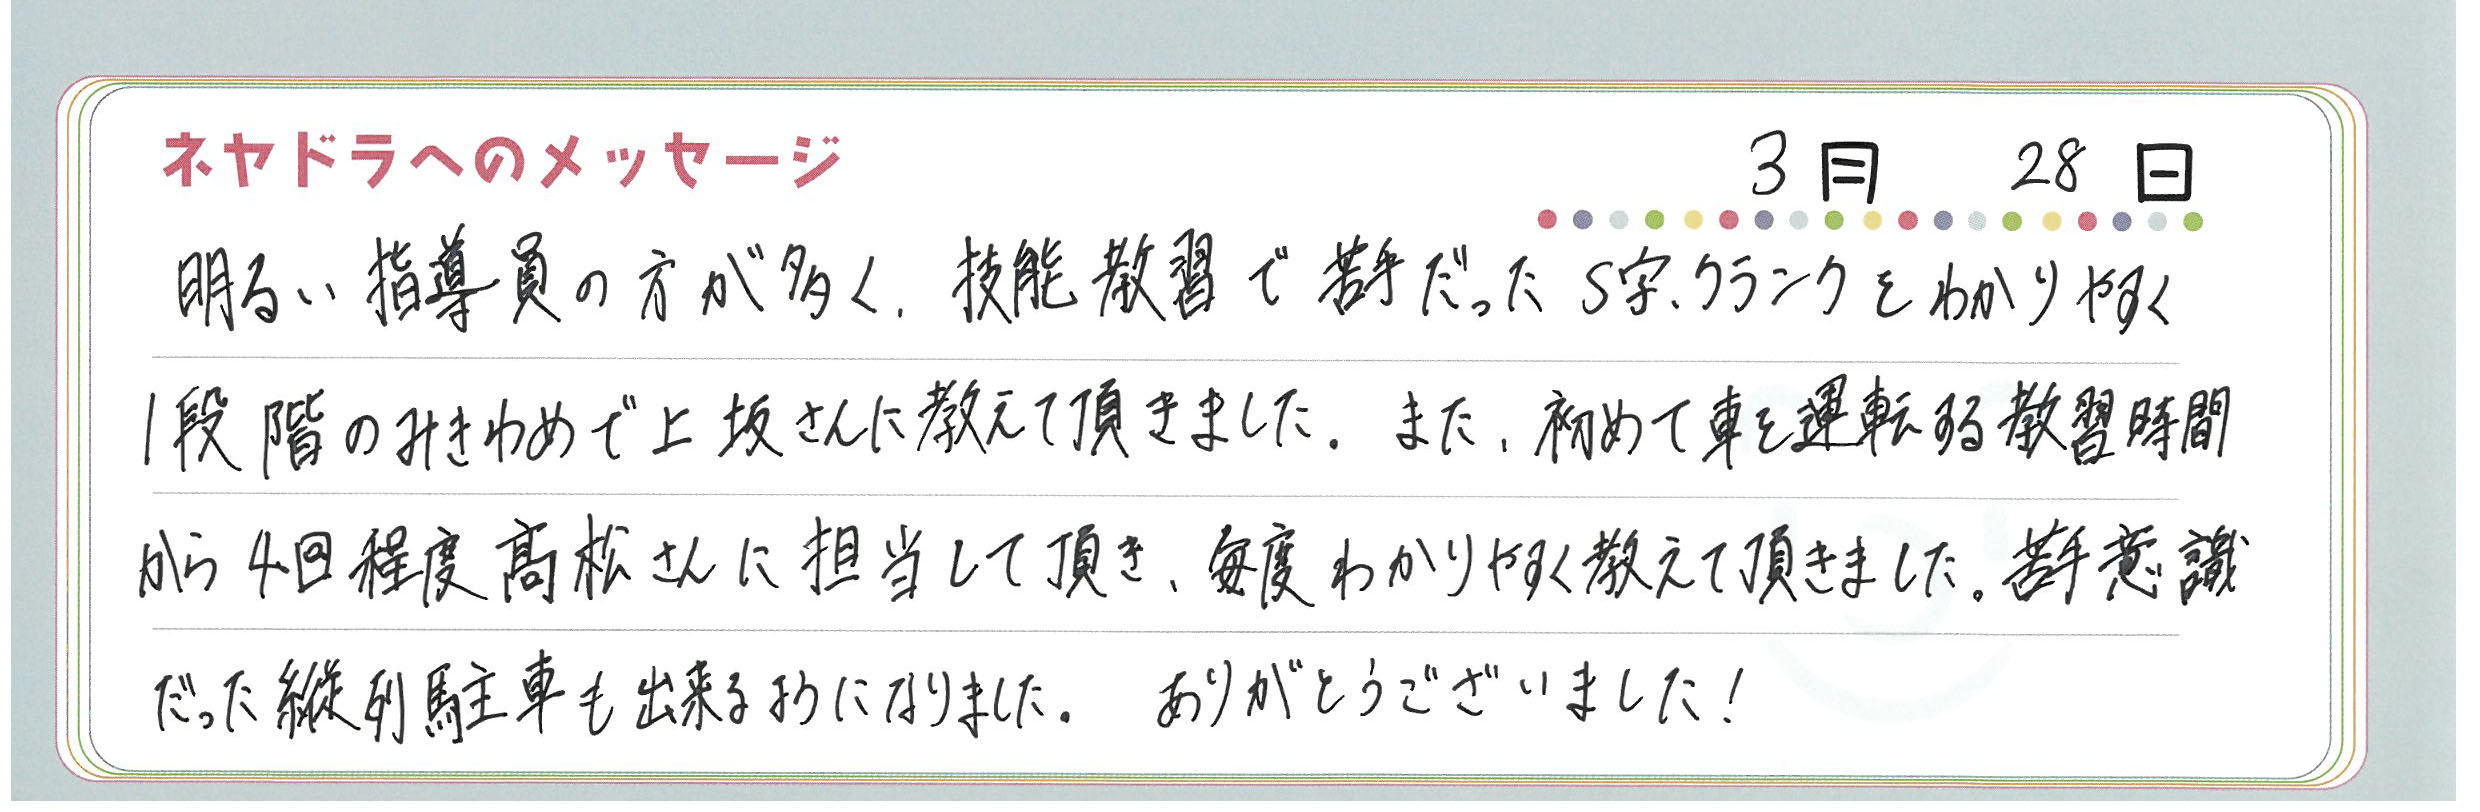 ネヤドラへのメッセージ
3月 28日
明るい指導員の方が多く、技能教習で苦手だったS字、クランクをわかりやすく
1段階のみきわめで上坂さんに教えて頂きました。また、初めて車を運転する教習時間
から4回程度高松さんに担当して頂き、毎度わかりやすく教えて頂きました。苦手意識
だった縦列駐車も出来るようになりました。 ありがとうございました!